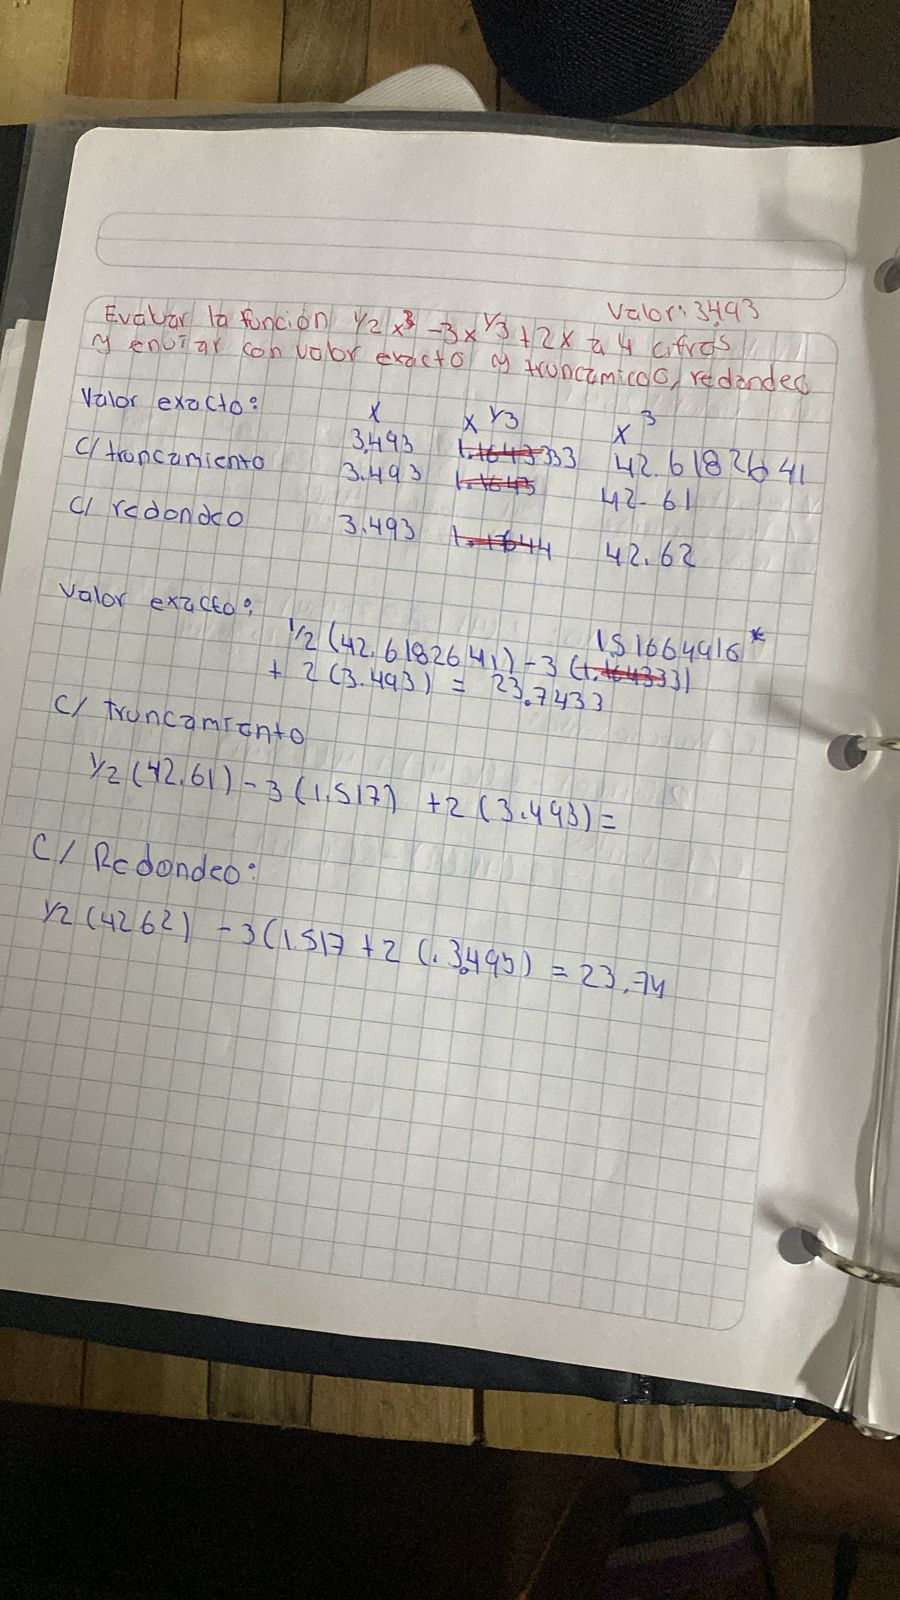 Valor: 3.493
Evaluar la función 1/2 x³ - 3x^1/3 + 2x a 4 cifras
y enviar con valor exacto y truncamicoo, redondeo
Valor exacto:
x x^1/3 x³
3.493 1.1643333 42.6182641
C/ truncamiento 3.493 1.1643 42.61
C/ redondeo 3.493 1.1644 42.62
Valor exacto:
1.51664916*
1/2 (42.6182641) - 3 (1.164333)
+ 2 (3.493) = 23.7433
C/ truncamiento
1/2 (42.61) - 3 (1.517) + 2 (3.493) =
C/ Redondeo:
1/2 (4262) - 3(1.517 + 2 (.3.493) = 23.74